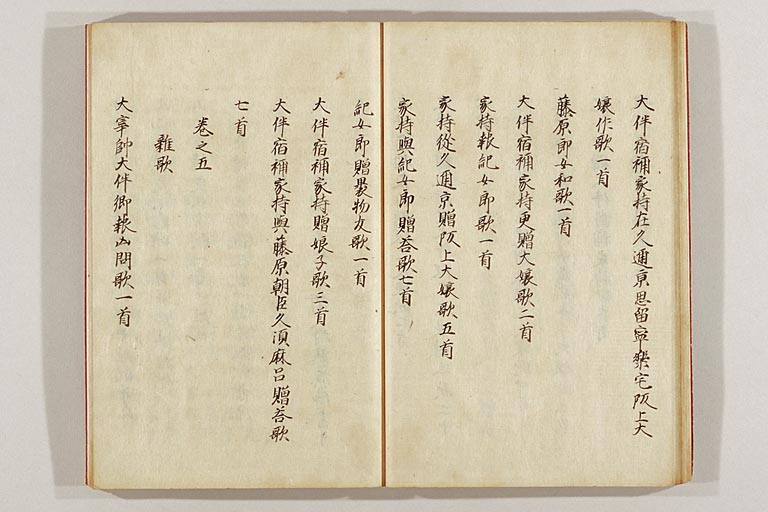 大伴宿祢家持在久邇京思留寧樂宅阪上大
孃作歌一首
藤原郎女和歌一首
大伴宿祢家持更贈大孃歌二首
家持報紀女郎歌一首
家持從久邇京贈阪上大孃歌五首
家持與紀女郎贈荅歌七首
紀女郎贈裹物友歌一首
大伴宿祢家持贈娘子歌三首
大伴宿祢家持與藤原朝臣久須麻呂贈荅歌
七首
卷之五
雜歌
大宰帥大伴卿報凶問歌一首